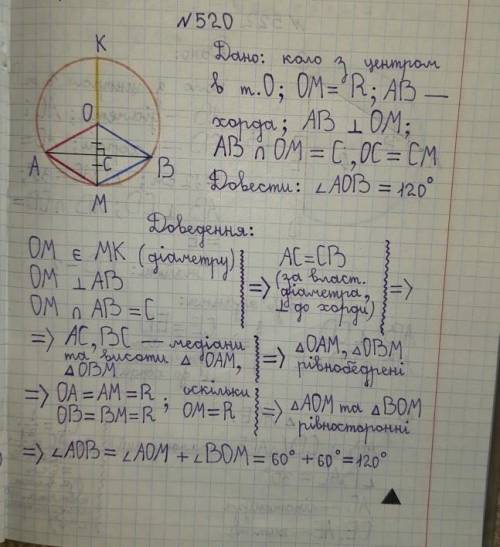 №520
K
O
A
C
B
M
Дано: коло з центром
в т.О; OM = R; AB —
хорда; AB ⊥ OM;
AB ∩ OM = C, OC = CM
Довести: ∠AOB = 120°
Доведення:
OM ∈ MK (діаметру)
OM ⊥ AB
OM ∩ AB = C
=> AC = CB
(за власт.
діаметра,
⊥ до хорди)
=>
=> AC, BC — медіани
та висоти △ OAM,
△OBM
=> △OAM, △OBM
рівнобедрені
=> OA = AM = R
OB = BM = R ; оскільки
OM = R
=> △AOM та △BOM
рівносторонні
=> ∠AOB = ∠AOM + ∠BOM = 60° + 60° = 120°